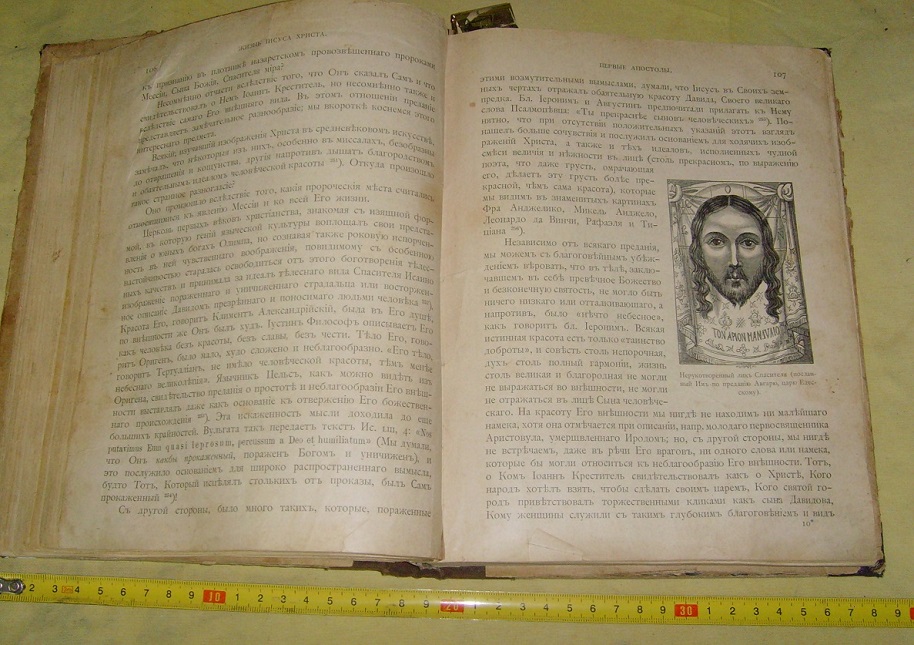 106
ЖИЗНЬ ІИСУСА ХРИСТА.
къ признанію въ плотникѣ назаретскомъ провозвѣщеннаго пророками
Мессіи, Сына Божія, Спасителя міра?
Несомнѣнно отчасти вслѣдствіе того, что Онъ сказалъ Самъ и что
свидѣтельствовалъ о Немъ Іоаннъ Креститель, но несомнѣнно также и
вслѣдствіе самого Его внѣшняго вида. Въ этомъ отношеніи преданіе
представляетъ замѣчательное разнообразіе; мы вкороткѣ коснемся этого
интереснаго предмета.
Всякій, изучавшій изображенія Христа въ средневѣковомъ искусствѣ,
замѣчалъ, что нѣкоторыя изъ нихъ, особенно въ миссалахъ, безобразны
до отвращенія и кощунства, другія напротивъ дышатъ благородствомъ
и обаятельнымъ идеаломъ человѣческой красоты Откуда произошло
такое странное разногласіе?
Оно произошло вслѣдствіе того, какія пророческія мѣста считались
относящимися къ явленію Мессіи и ко всей Его жизни.
Церковь первыхъ вѣковъ христіанства, знакомая съ изящной фор-
мой, въ которую геній языческой культуры воплощалъ свои предста-
вленія о юныхъ богахъ Олимпа, но сознавая также роковую испорчен-
ность въ ней чувственнаго воображенія, повидимому съ особенною
настойчивостью старалась освободиться отъ этого боготворенія тѣлес-
ныхъ качествъ и принимала за идеалъ тѣлеснаго вида Спасителя Исаино
изображеніе пораженнаго и уничиженнаго страдальца или восторжен-
ное описаніе Давидомъ презрѣннаго и поносимаго людьми человѣка
Красота Его, говоритъ Климентъ Александрійскій, была въ Его душѣ,
по внѣшности же Онъ былъ худъ. Іустинъ Философъ описываетъ Его
какъ человѣка безъ красоты, безъ славы, безъ чести. Тѣло Его, гово-
ритъ Оригенъ, было мало, худо сложено и неблагообразно. «Его тѣло,
говоритъ Тертулліанъ, не имѣло человѣческой красоты, тѣмъ менѣе
небеснаго великолѣпія». Язычникъ Цельсъ, какъ можно видѣть изъ
Оригена, свидѣтельство преданія о простотѣ и неблагообразіи Его внѣш-
ности выставлялъ даже какъ основаніе къ отверженію Его божествен-
наго происхожденія Эта искаженность мысли доходила до еще
большихъ крайностей. Вульгата такъ передаетъ текстъ Ис. LIII, 4: «Nos
putavimus Eum quasi leprosum, percussum a Deo et humiliatum» (Мы думали,
что Онъ какъбы прокаженный, пораженъ Богомъ и уничиженъ), и
это послужило основаніемъ для широко распространеннаго вымысла,
будто Тотъ, Который исцѣлялъ столькихъ отъ проказы, былъ Самъ
прокаженный
Съ другой стороны, было много такихъ, которые, пораженные
ПЕРВЫЕ АПОСТОЛЫ.
107
этими возмутительными вымыслами, думали, что Іисусъ въ Своихъ зем-
ныхъ чертахъ отражалъ обаятельную красоту Давида, Своего великаго
предка. Бл. Іеронимъ и Августинъ предпочитали прилагать къ Нему
слова Псалмопѣвца: «Ты прекраснѣе сыновъ человѣческихъ» По-
нятно, что при отсутствіи положительныхъ указаній этотъ взглядъ
нашелъ больше сочувствія и послужилъ основаніемъ для ходячихъ изоб-
раженій Христа, а также и тѣхъ идеаловъ, исполненныхъ чудной
смѣси величія и нѣжности въ лицѣ (столь прекрасномъ, по выраженію
поэта, что даже грусть, омрачающая
его, дѣлаетъ эту грусть болѣе пре-
красной, чѣмъ сама красота), которые
мы видимъ въ знаменитыхъ картинахъ
Фра Анджелико, Микель Анджело,
Леонардо да Винчи, Рафаэля и Ти-
ціана
Независимо отъ всякаго преданія,
мы можемъ съ благоговѣйнымъ убѣж-
деніемъ вѣровать, что въ тѣлѣ, заклю-
чавшемъ въ себѣ превѣчное Божество
и безконечную святость, не могло быть
ничего низкаго или отталкивающаго, а
напротивъ, было «нѣчто небесное»,
какъ говоритъ бл. Іеронимъ. Всякая
истинная красота есть только «таинство
доброты», и совѣсть столь непорочная,
духъ столь полный гармоніи, жизнь
столь великая и благородная не могли
не выражаться во внѣшности, не могли
не отражаться въ лицѣ Сына человѣче-
скаго. На красоту Его внѣшности мы нигдѣ не находимъ ни малѣйшаго
намека, хотя она отмѣчается при описаніи, напр. молодаго первосвященника
Аристовула, умерщвленнаго Иродомъ; но, съ другой стороны, мы нигдѣ
не встрѣчаемъ, даже въ рѣчи Его враговъ, ни одного слова или намека,
которые бы могли относиться къ неблагообразію Его внѣшности. Тотъ,
о Комъ Іоаннъ Креститель свидѣтельствовалъ какъ о Христѣ, Кого
народъ хотѣлъ взять, чтобы сдѣлать своимъ царемъ, Кого святой го-
родъ привѣтствовалъ торжественными кликами какъ сына Давидова,
Кому женщины служили съ такимъ глубокимъ благоговѣніемъ и видъ
10*
ΤΟΝ ΑΓΙΟΝ ΜΑΝΔΥΛΙΟΝ
Нерукотворенный ликъ Спасителя (послан-
ный Имъ по преданію Авгарю, царю Едес-
скому).
2 3 4 5 6 7 8 9 10 1 2 3 4 5 6 7 8 9 20 1 2 3 4 5 6 7 8 9 30 1 2 3 4 5 6 7 8 9